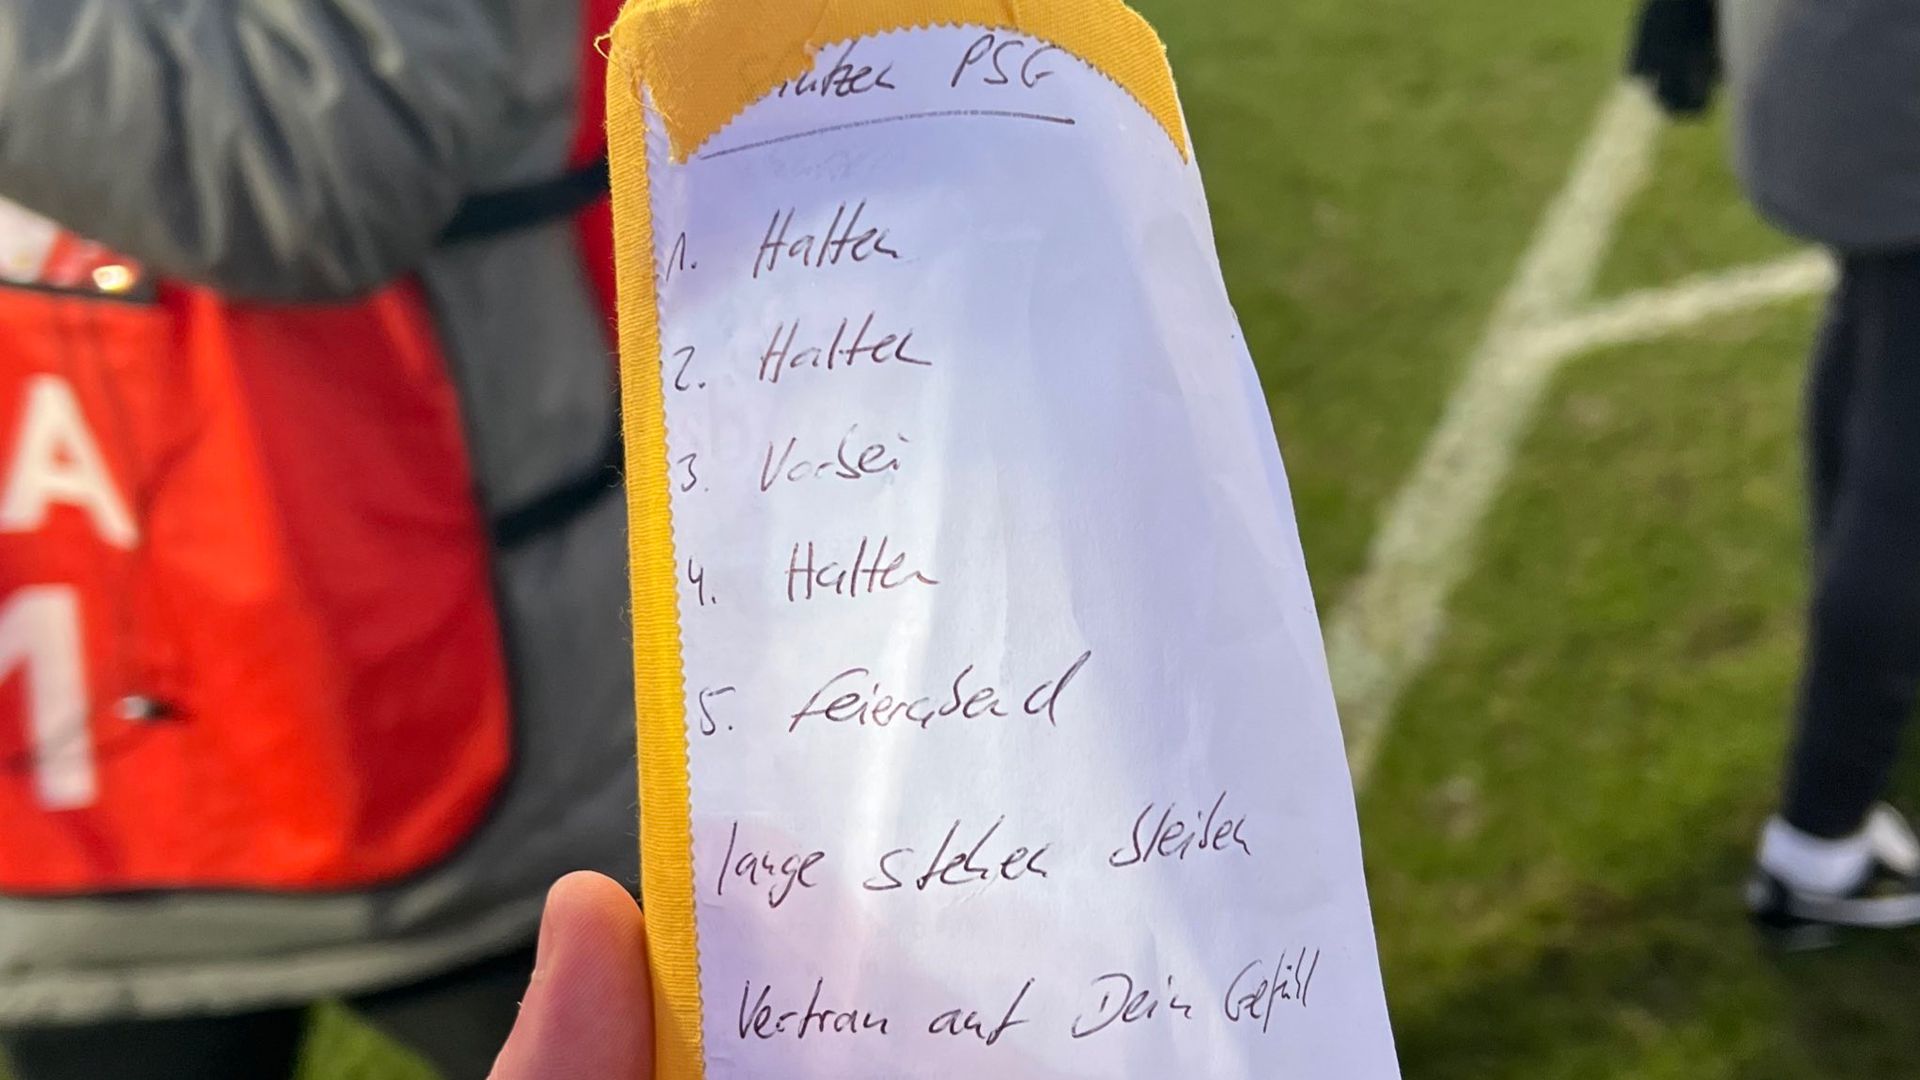 PSG
1. Halten
2. Halten
3. Vorbei
4. Halten
5. Feierabend
lange stehen bleiben
Vertrau auf Dein Gefühl
A
1